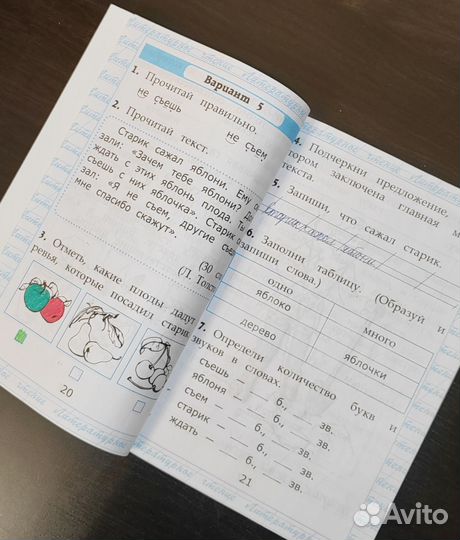 Вариант 5
1. Прочитай правильно.
не съешь не съем
2. Прочитай текст.
Старик сажал яблони. Ему
зали: «Зачем тебе яблони?
ждать с этих яблонь плода.
съешь с них яблочка». Старик
зал: «Я не съем, другие
мне спасибо скажут».
(30
(Л.
3. Отметь, какие плоды дадут
ревья, которые посадил старик
20
4. Подчеркни предложение,
тором заключена главная
текста.
5. Запиши, что сажал старик.
6. Заполни таблицу. (Образуй и
запиши слова.)
одно много
яблоко
яблочки
дерево
7. Определи количество букв и
звуков в словах.
съешь — б., — зв.
яблоня — б., — зв.
съем — б., — зв.
старик — б., — зв.
ждать — б., — зв.
21
Литературное чтение
Avito